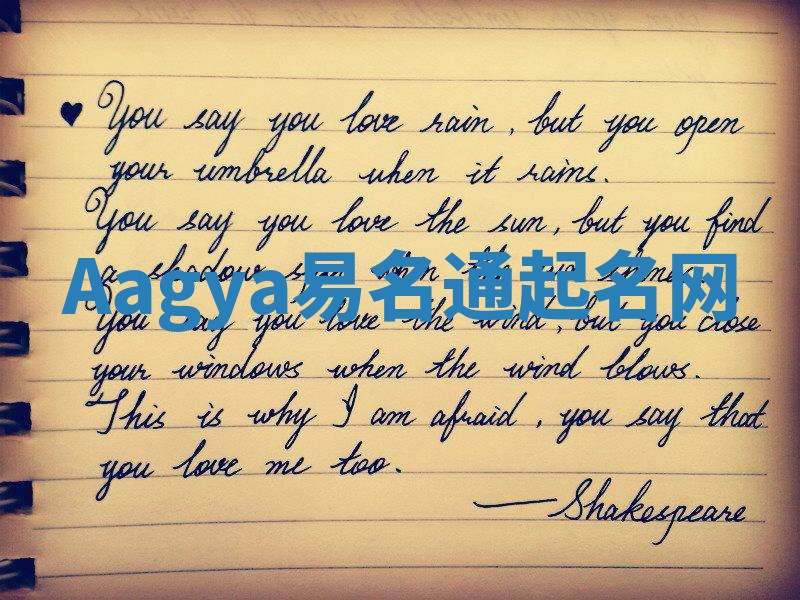 ♥ You say you love rain, but you open
your umbrella when it rains.
You say you love the sun, but you find
a shadow spot when the sun shines.
Aagya易名通起名网
You say you love the wind, but you close
your windows when the wind blows.
This is why I am afraid, you say that
you love me too.
—Shakespeare